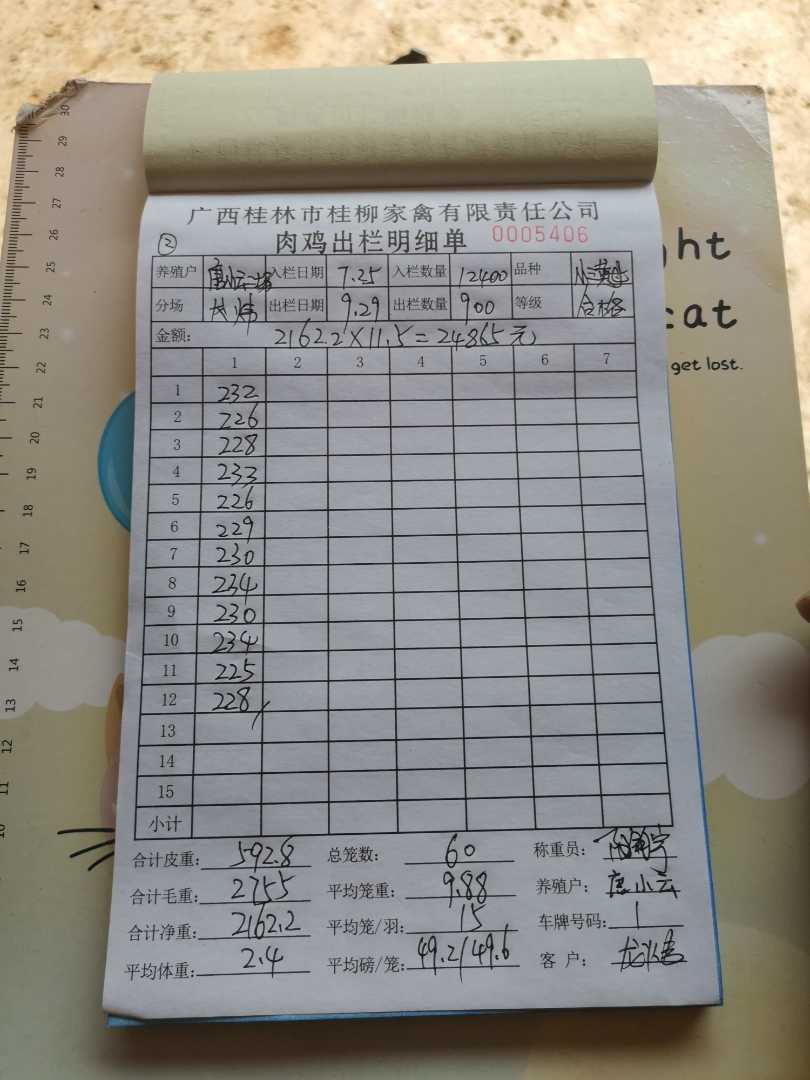 广西桂林市桂柳家禽有限责任公司
② 肉鸡出栏明细单 0005406
养殖户 唐小云二场 入栏日期 7.25 入栏数量 12400 品种
分场 大炜 出栏日期 9.29 出栏数量 900 等级 合格
金额: 2162.2×11.5=24865元
1 2 3 4 5 6 7
1 232
2 226
3 228
4 233
5 226
6 229
7 230
8 234
9 230
10 234
11 225
12 228
13
14
15
小计
合计皮重: 592.8 总笼数: 60 称重员:
合计毛重: 2755 平均笼重: 9.88 养殖户: 唐小云
合计净重: 2162.2 平均笼/羽: 15 车牌号码: 1
平均体重: 2.4 平均磅/笼: 49.2/49.6 客 户:
ght
cat
get lost.
30
29
28
27
26
25
24
23
22
21
20
19
18
17
16
15
14
13
12
11
10